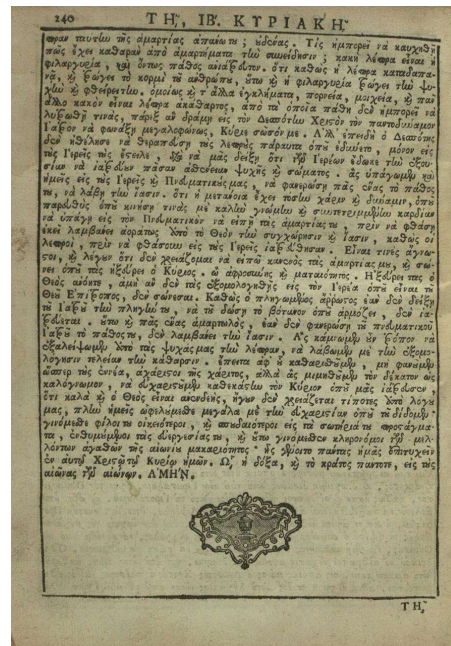 240 ΤΗ͂, ΙΒ. ΚΥΡΙΑΚΗ͂,
πραν ταύτην τῆς ἁμαρτίας ἀπάνω τε; οὐδένας. Τίς ἠμπορεῖ νὰ καυχηθῇ
πῶς ἔχει καθαρὰν ἀπὸ ἁμαρτήματα τὴν συνείδησιν; κακὴ λέπρα εἶναι ἡ
φιλαργυρία, καὶ ὄντως πάθος ἀνίατρευτον. ὅτι καθὼς ἡ λέπρα καταδαπα-
νᾷ, καὶ τρώγει τὸ κορμὶ τοῦ ἀνθρώπου, οὕτω καὶ ἡ φιλαργυρία τρώγει τὴν ψυ-
χὴν καὶ φθείρει την. ὁμοίως καὶ τὰ ἄλλα ἐγκλήματα, πορνεία, μοιχεία, καὶ πᾶν
ἄλλο κακὸν εἶναι λέπρα ἀκάθαρτος, ἀπὸ τὰ ὁποῖα πάθη δὲν ἠμπορεῖ νὰ
λυτρωθῇ τινάς, πάρεξ ἂν δράμῃ εἰς τὸν Δεσπότην Χριστὸν τὸν παντοδύναμον
Ἰατρὸν νὰ φωνάξῃ μεγαλοφώνως, Κύριε σῶσόν με. Ἀλλ' ἐπειδὴ ὁ Δεσπότης
δὲν ἠθέλησε νὰ θεραπεύσῃ τοὺς λεπροὺς πάραυτα ὁποῦ ἐδέοντο, μόνον εἰς
τοὺς Ἱερεῖς τοὺς ἔστειλε, διὰ νὰ μᾶς δείξῃ ὅτι τῶν Ἱερέων ἔδωκε τὴν ἐξου-
σίαν νὰ ἰατρεύουν πᾶσαν ἀσθένειαν ψυχῆς καὶ σώματος. ἂς ὑπάγωμεν καὶ
ἡμεῖς εἰς τοὺς Ἱερεῖς καὶ Πνευματικούς μας, νὰ φανερώσῃ πᾶς ἕνας τὸ πάθος
του, νὰ λάβῃ τὴν ἴασιν. ὅτι ἡ μετάνοια ἔχει τόσην χάριν καὶ δύναμιν, ὁποῦ
παρευθὺς ὁποῦ κινήσῃ τινὰς μὲ καλὴν γνώμην καὶ συντετριμμένην καρδίαν
νὰ ὑπάγῃ εἰς τὸν Πνευματικὸν νὰ εἰπῇ τὰς ἁμαρτίας του, πρὶν νὰ φθάσῃ
ἐκεῖ λαμβάνει ἀοράτως ἀπὸ τὸ Θεὸν τὴν συγχώρησιν καὶ ἴασιν, καθὼς οἱ
λεπροί, πρὶν νὰ φθάσουν εἰς τοὺς Ἱερεῖς ἰατρεύθησαν. Εἶναι τινὲς ἄγνω-
στοι, καὶ λέγουν ὅτι δὲν χρειάζομαι νὰ εἰπῶ κανενὸς τὰς ἁμαρτίας μου, καὶ σώ-
νει ὁποῦ τὰς ἠξεύρει ὁ Κύριος. ὢ ἀφροσύνης καὶ ματαιότητος. Ἠξεύρει τας ὁ
Θεὸς ἀνόητε, ἀμὴ ἂν δὲν τὰς ἐξομολογηθῇς εἰς τὸν Ἱερέα ὁποῦ εἶναι τοῦ
Θεοῦ Ἐπίτροπος, δὲν σώνεσαι. Καθὼς ὁ πληγωμένος ἄρρωστος ἐὰν δὲν δείξῃ
τοῦ Ἰατροῦ τὴν πληγήν του, νὰ τοῦ δώσῃ τὸ βότανον ὁποῦ ἁρμόζει, δὲν ἰα-
τρεύεται. οὕτω καὶ πᾶς ἕνας ἁμαρτωλός, ἐὰν δὲν φανερώσῃ τοῦ πνευματικοῦ
Ἰατροῦ τὸ πάθος του, δὲν λαμβάνει τὴν ἴασιν. Ἂς κάμωμεν τὸν τρόπον νὰ
ἐξαλείψωμεν ἀπὸ τὰς ψυχάς μας τὴν λέπραν, νὰ λάβωμεν μὲ τὴν ἐξομο-
λόγησιν τελείαν τὴν κάθαρσιν. ἔπειτα ἀφ' οὗ καθαρισθῶμεν, μὴ φανῶμεν
ὥσπερ τοὺς ἐννέα, ἀχάριστοι τῆς χάριτος, ἀλλὰ ἂς μιμηθῶμεν τὸν δέκατον ὡς
καλόγνωμον, νὰ εὐχαριστῶμεν καθεκάστην τὸν Κύριον ὁποῦ μᾶς ἰάτρευσεν.
ὅτι καλὰ καὶ ὁ Θεὸς εἶναι ἀνενδεής, ἤγουν δὲν χρειάζεται τίποτες ἀπὸ λόγου
μας, πλὴν ἡμεῖς ὠφελούμεθα μεγάλα μὲ τὴν εὐχαριστίαν ὁποῦ τοῦ δίδομεν.
γινόμεθα φίλοι του οἰκειότεροι, καὶ σπουδαιότεροι εἰς τὰ σωτήριά του προστάγμα-
τα, ἐνθυμούμενοι τὰς εὐεργεσίας του, καὶ οὕτω γινόμεθα κληρονόμοι τῶν μελ-
λόντων ἀγαθῶν τῆς αἰωνίου μακαριότητος. ἧς γένοιτο πάντας ἡμᾶς ἐπιτυχεῖν
ἐν αὐτῷ Χριστῷ τῷ Κυρίῳ ἡμῶν. ᾯ, ἡ δόξα, καὶ τὸ κράτος πάντοτε, εἰς τοὺς
αἰῶνας τῶν αἰώνων. ΑΜΗΝ.
ΤΗ͂,